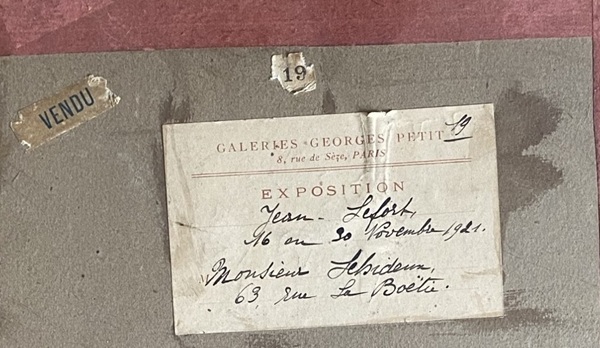 VENDU
19
GALERIES GEORGES PETIT 19
8, rue de Sèze, PARIS
EXPOSITION
Jean-Lefort,
16 au 30 Novembre 1921.
Monsieur Schideun,
63 rue La Boëtie.